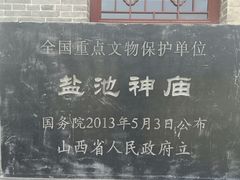 全国重点文物保护单位
盐池神庙
国务院2013年5月3日公布
山西省人民政府立